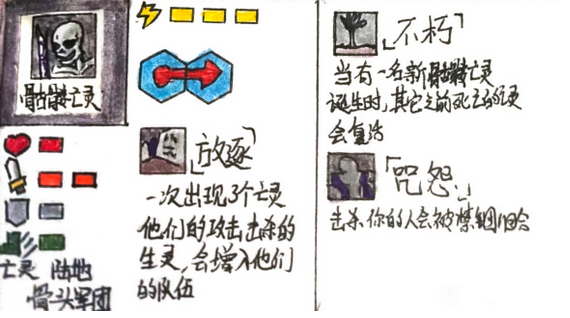 骷髅亡灵
亡灵 陆地
骨头军团
「放逐」
一次出现3个亡灵
他们的攻击击杀的
生灵,会增入他们
的队伍
「不朽」
当有一名新骷髅亡灵
诞生时,其它之前死亡的灵
会复活
「咒怨」
击杀你的人会被禁锢1回合